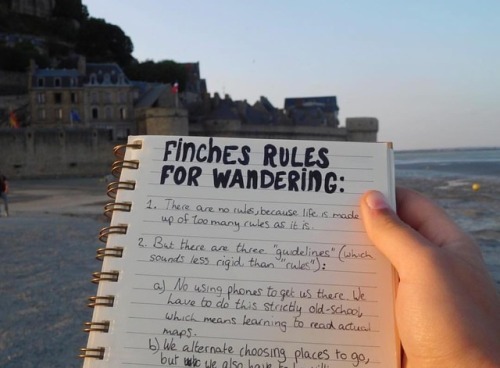 FINCHES RULES
FOR WANDERING:
1. There are no rules, because life is made
up of too many rules as it is.
2. But there are three "guidelines" (which
sounds less rigid than "rules"):
a) No using phones to get us there. We
have to do this strictly old-school,
which means learning to read actual
maps.
b) We alternate choosing places to go,
but we also have to be